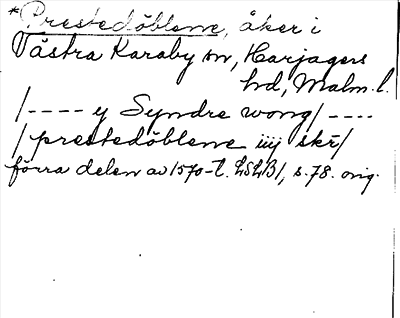 *Prestedöblerne, åker i
Västra Karaby sn, Harjagers
hd, Malm. l.
/---- y Syndre wong/ ----
/ prestedöblerne iiij skr̄/
förra delen av 1570-t. LSLB1, s. 78. orig.